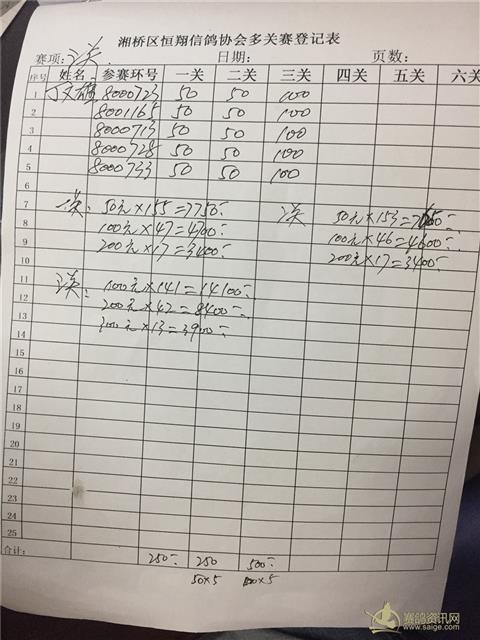 湘桥区恒翔信鸽协会多关赛登记表
赛项: 日期: 页数:
序号 姓名 参赛环号 一关 二关 三关 四关 五关 六关
1 8000723 50 50 100
2 8001165 50 50 100
3 8000713 50 50 100
4 8000728 50 50 100
5 8000733 50 50 100
6
7 50元×155=7750 50元×153=
8 100元×47=4700 100元×46=4600
9 200元×17=3400 200元×17=3400
10
11 100元×141=14100
12 200元×42=8400
13 300元×13=3900
14
15
16
17
18
19
20
21
22
23
24
25
合计: 250 250 500
50×5 100×5
赛鸽资讯网
www.saige.com